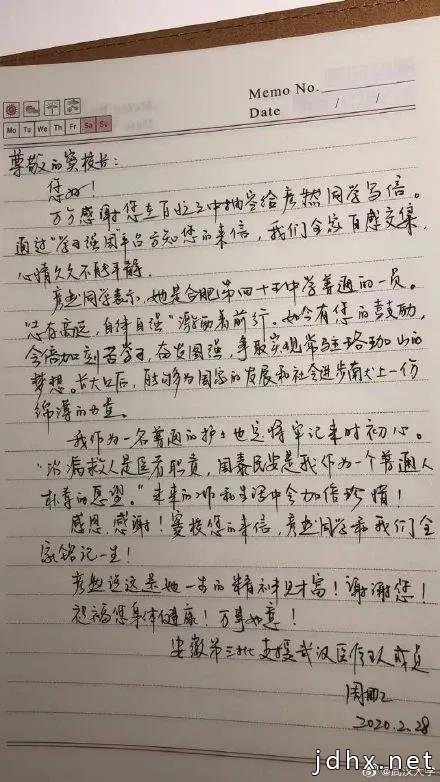 Memo No.
Mo Tu We Th Fr Sa Su
Date / /
尊敬的窦校长：
您好！
万分感谢您在百忙之中抽空给彦然同学写信。
通过“学习强国平台方知您的来信，我们全家百感交集，
心情久久不能平静。
彦然同学表示，她是合肥第四十五中学普通的一员。
“志存高远，自律自强”激励着前行。如今有您的鼓励，
会倍加刻苦学习，奋发图强，争取实现常驻珞珈山的
梦想。长大以后，能够为国家的发展和社会进步献上一份
绵薄的力量。
我作为一名普通的护士也定将牢记来时初心。
“治病救人是医者职责，国泰民安是我作为一个普通人
朴素的愿望。”未来的工作和生活中会加倍珍惜！
感恩，感谢！窦校您的来信，彦然同学和我们全
家铭记一生！
彦然说这是她一生的精神财富！谢谢您！
祝福您身体健康！万事如意！
安徽第三批支援武汉医疗队成员
周
2020.2.28
@武汉大学
jdhx.net